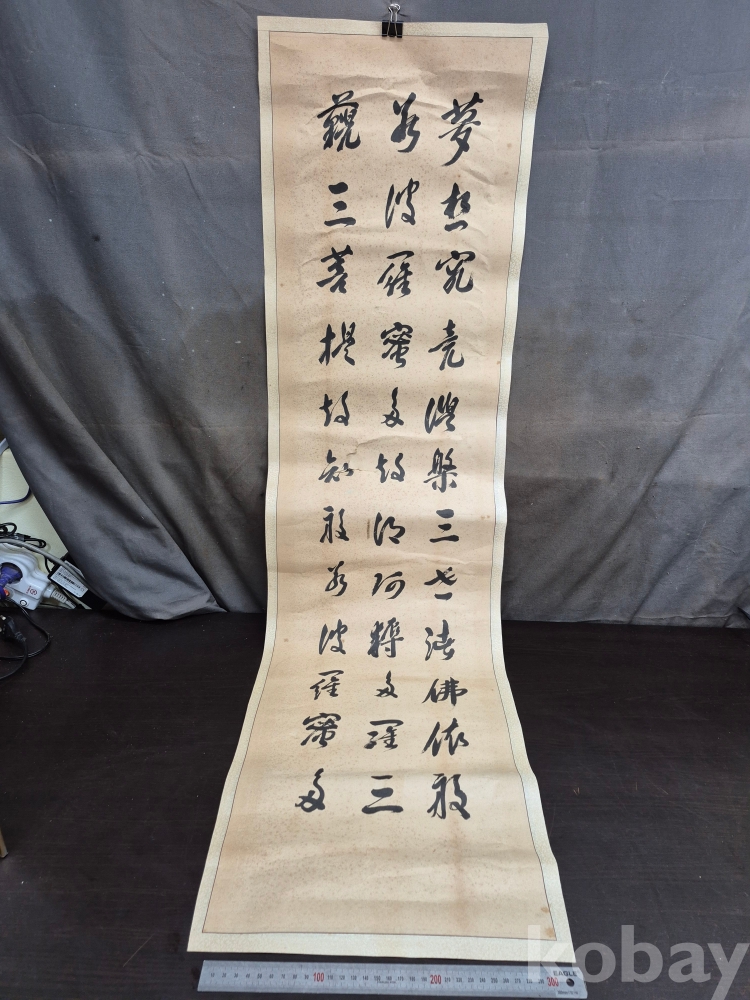 夢想究竟涅槃三世諸佛依般
若波羅蜜多故得阿耨多羅三
藐三菩提故知般若波羅蜜多
kobay
100 200 300
EAGLE